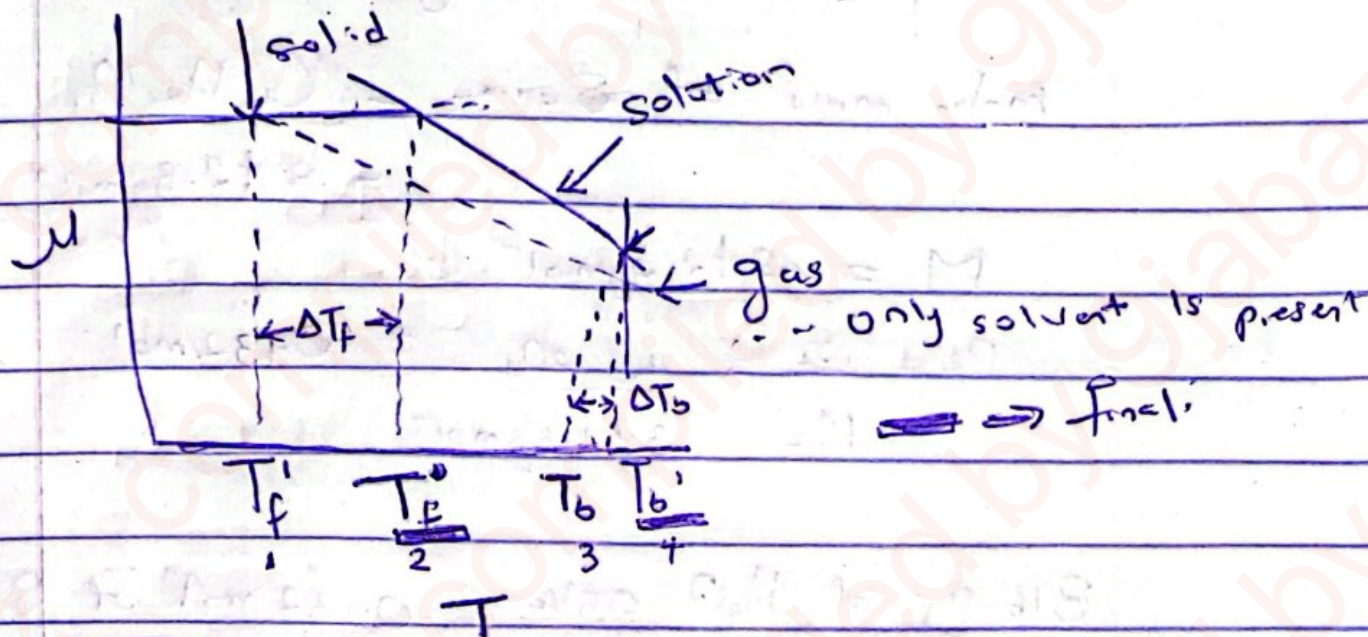 solid
solution
μ
gas
... only solvent is present
←ΔTf→
ΔTb
⇒ final.
Tf' Tf° Tb Tb'
1 2 3 4
T